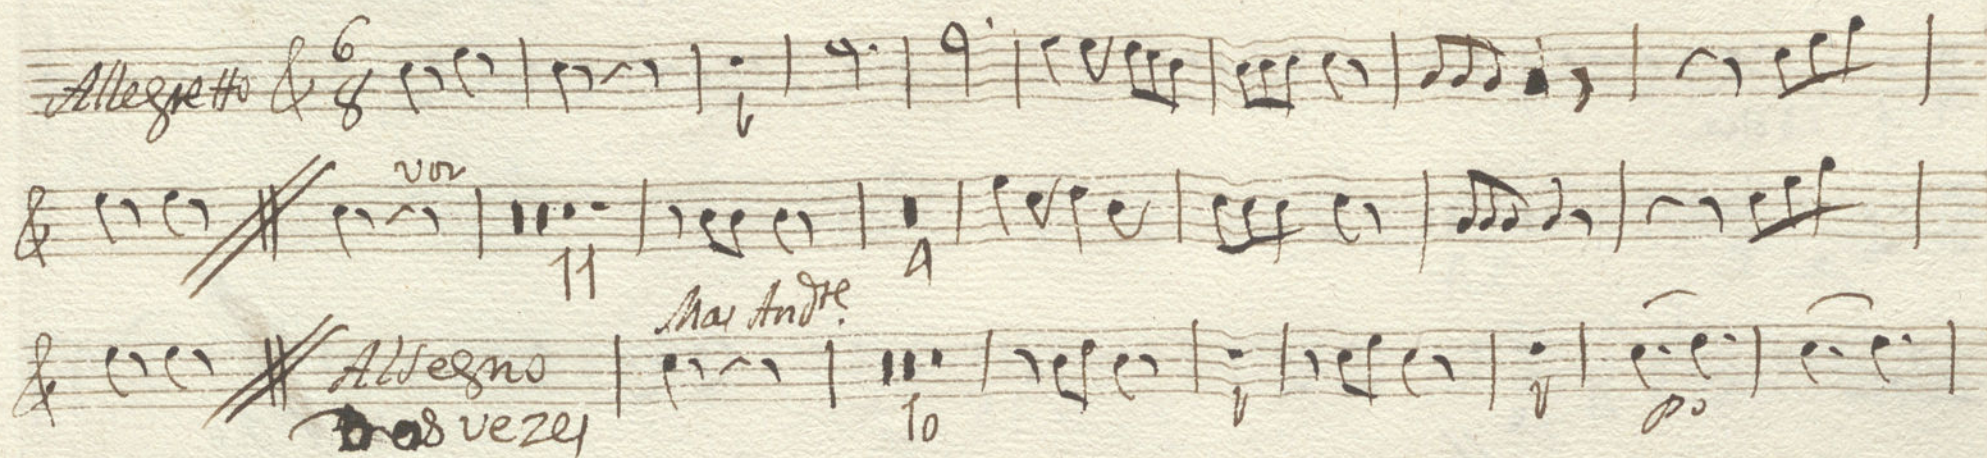 Allegretto 6 8
voz
11 4
Mas And.te
Al Segno
Dos vezes
10 po